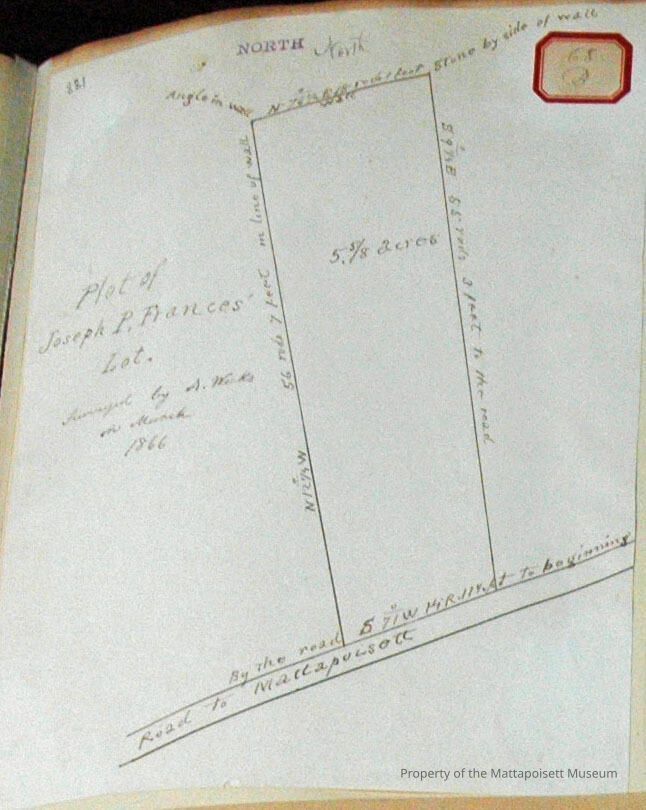 331
NORTH North
Angle in wall
Stone by side of wall
5.5/8 acres
S 9¼ E 55 rods 3 feet to the road
N 12¼ W 56 rods 7 feet in line of wall
Plot of
Joseph P. Frances'
Lot.
Surveyed by A. Weeks
in March
1866
By the road S 71° W 14 R 11¼ ft to beginning
Road to Mattapoisett
Property of the Mattapoisett Museum